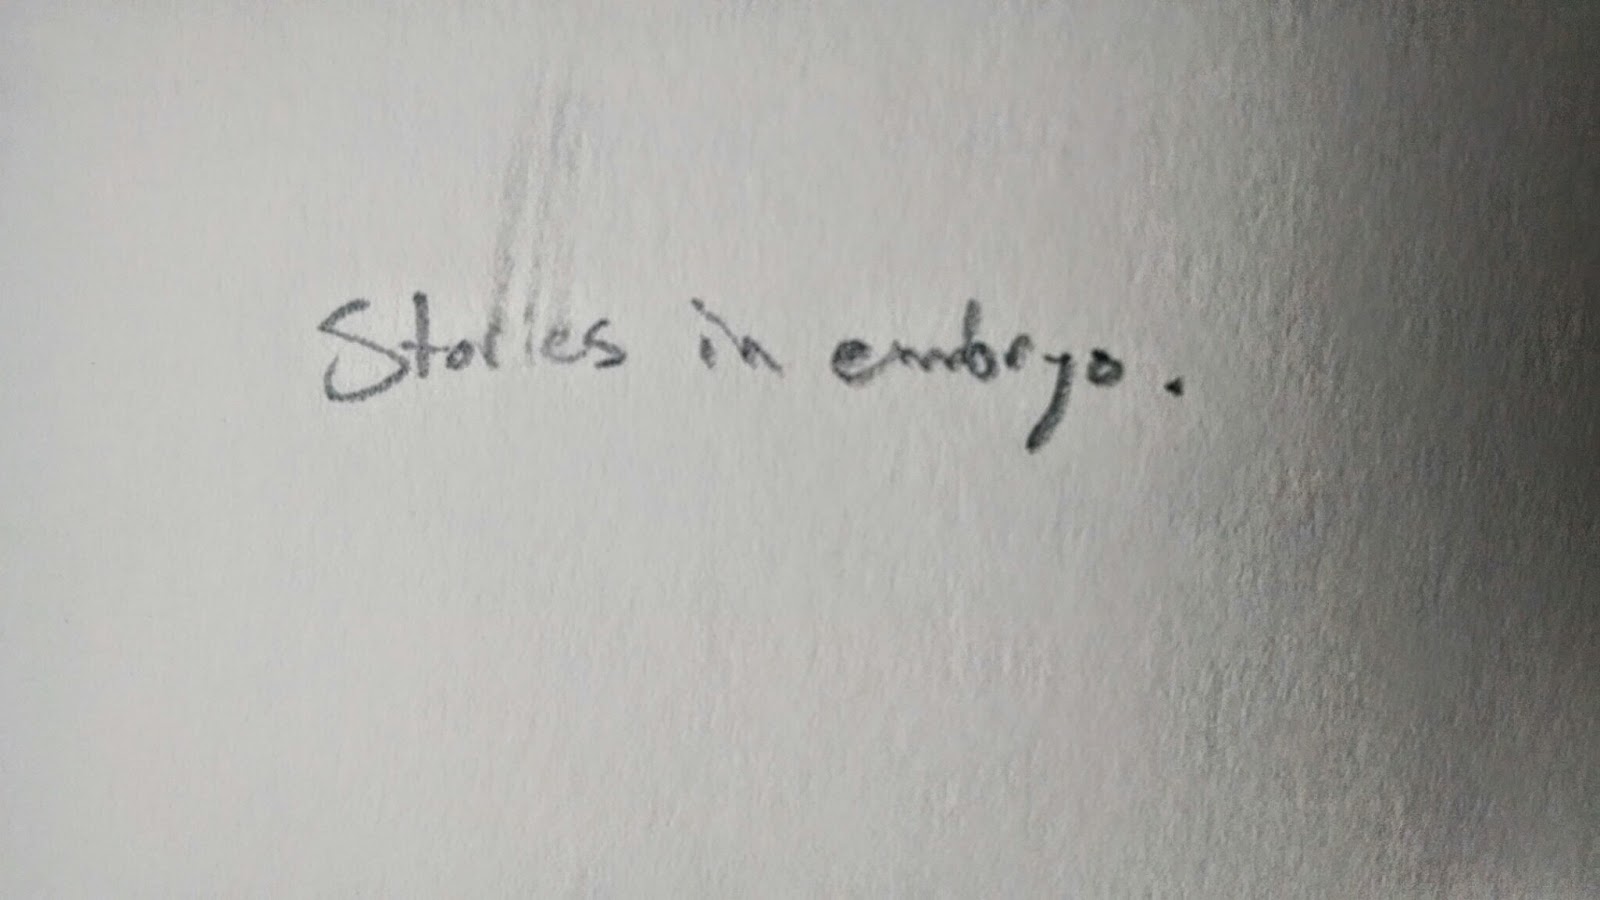 Stories in embryo.